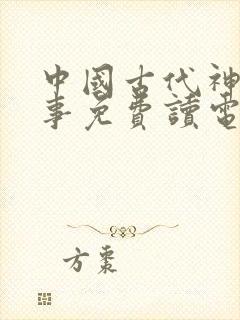 中國古代神
事免費讀電
方棗